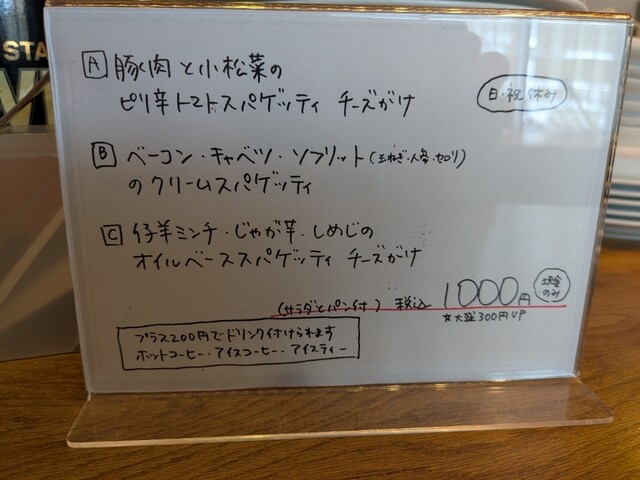 STA
A 豚肉と小松菜の
ピリ辛トマトスパゲッティ チーズがけ
日・祝休み
B ベーコン・キャベツ・ソフリット(玉ねぎ・人参・セロリ)
のクリームスパゲッティ
C 仔羊ミンチ・じゃが芋・しめじの
オイルベーススパゲッティ チーズがけ
(サラダとパン付) 税込 1000円
現金のみ
☆大盛300円UP
プラス200円でドリンク付けられます
ホットコーヒー・アイスコーヒー・アイスティー